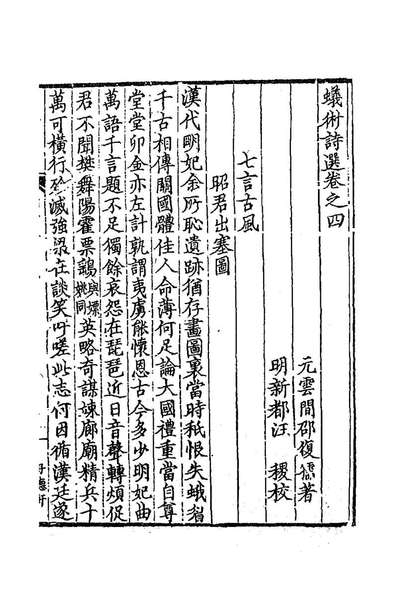 蟻術詩選卷之四
元雲間邵復孺著
明新都汪　稷校
七言古風
昭君出塞圖
漢代明妃余所恥遺跡猶存畫圖裏當時秪恨失蛾眉
千古相傳關國體佳人命薄何足論大國禮重當自尊
堂堂卯金亦左計孰謂夷虜能懷恩古今多少明妃曲
萬語千言題不足獨餘哀怨在琵琶近日音聲轉煩促
君不聞樊舞陽霍票鷂與嫖姚同英略奇謀竦廊廟精兵十
萬可橫行殄滅強梁在談笑吁嗟此志何因循漢廷遂